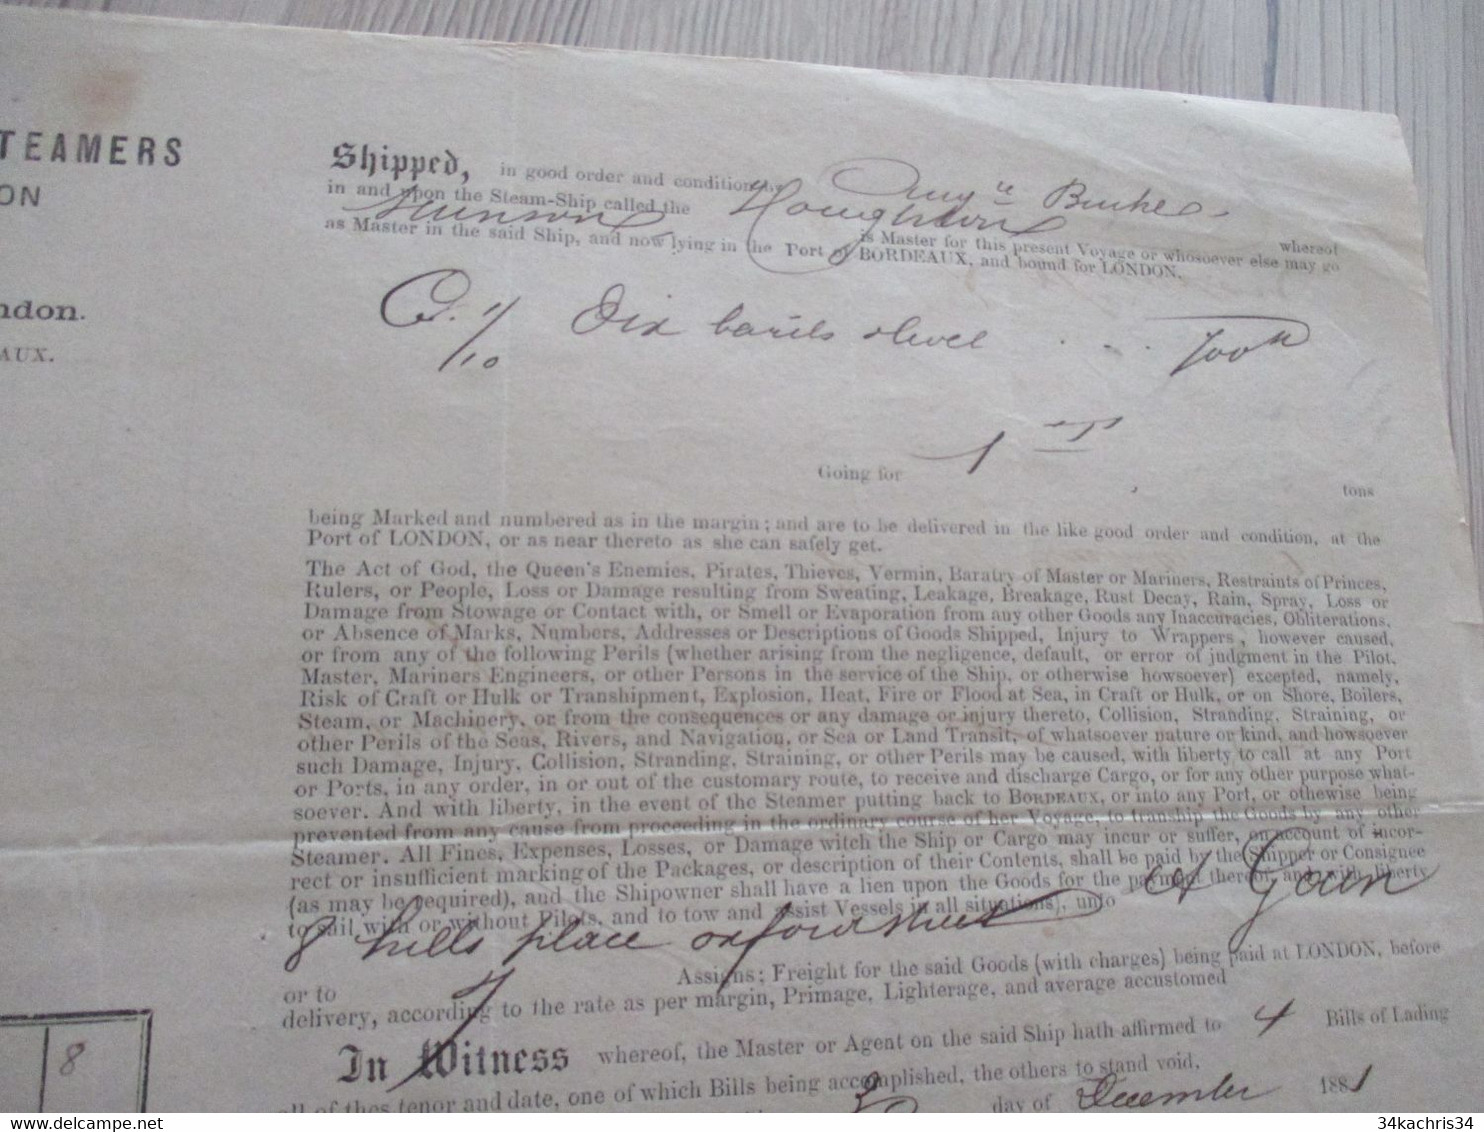 TEAMERS
ON
ndon.
AUX.
8
Shipped, in good order and condition by Augte
in and upon the Steam-Ship called the Houghton whereof
is Master for this present Voyage or whosoever else may go
as Master in the said Ship, and now lying in the Port of BORDEAUX, and bound for LONDON.
1/10 Dix barils
Going for 1 tons
being Marked and numbered as in the margin; and are to be delivered in the like good order and condition, at the
Port of LONDON, or as near thereto as she can safely get.
The Act of God, the Queen's Enemies, Pirates, Thieves, Vermin, Baratry of Master or Mariners, Restraints of Princes,
Rulers, or People, Loss or Damage resulting from Sweating, Leakage, Breakage, Rust Decay, Rain, Spray, Loss or
Damage from Stowage or Contact with, or Smell or Evaporation from any other Goods any Inaccuracies, Obliterations,
or Absence of Marks, Numbers, Addresses or Descriptions of Goods Shipped, Injury to Wrappers, however caused,
or from any of the following Perils (whether arising from the negligence, default, or error of judgment in the Pilot,
Master, Mariners Engineers, or other Persons in the service of the Ship, or otherwise howsoever) excepted, namely,
Risk of Craft or Hulk or Transhipment, Explosion, Heat, Fire or Flood at Sea, in Craft or Hulk, or on Shore, Boilers,
Steam, or Machinery, or from the consequences or any damage or injury thereto, Collision, Stranding, Straining, or
other Perils of the Seas, Rivers, and Navigation, or Sea or Land Transit, of whatsoever nature or kind, and howsoever
such Damage, Injury, Collision, Stranding, Straining, or other Perils may be caused, with liberty to call at any Port
or Ports, in any order, in or out of the customary route, to receive and discharge Cargo, or for any other purpose what-
soever. And with liberty, in the event of the Steamer putting back to BORDEAUX, or into any Port, or othewise being
prevented from any cause from proceeding in the ordinary course of her Voyage, to tranship the Goods by any other
Steamer. All Fines, Expenses, Losses, or Damage witch the Ship or Cargo may incur or suffer, on account of incor-
rect or insufficient marking of the Packages, or description of their Contents, shall be paid by the Shipper or Consignee
(as may be required), and the Shipowner shall have a lien upon the Goods for the payment thereof, and with liberty
to sail with or without Pilots, and to tow and assist Vessels in all situations), unto
8 hills place oxford street
or to Assigns; Freight for the said Goods (with charges) being paid at LONDON, before
delivery, according to the rate as per margin, Primage, Lighterage, and average accustomed
In Witness whereof, the Master or Agent on the said Ship hath affirmed to 4 Bills of Lading
all of thes tenor and date, one of which Bills being accomplished, the others to stand void,
day of December 1881
34kachris34